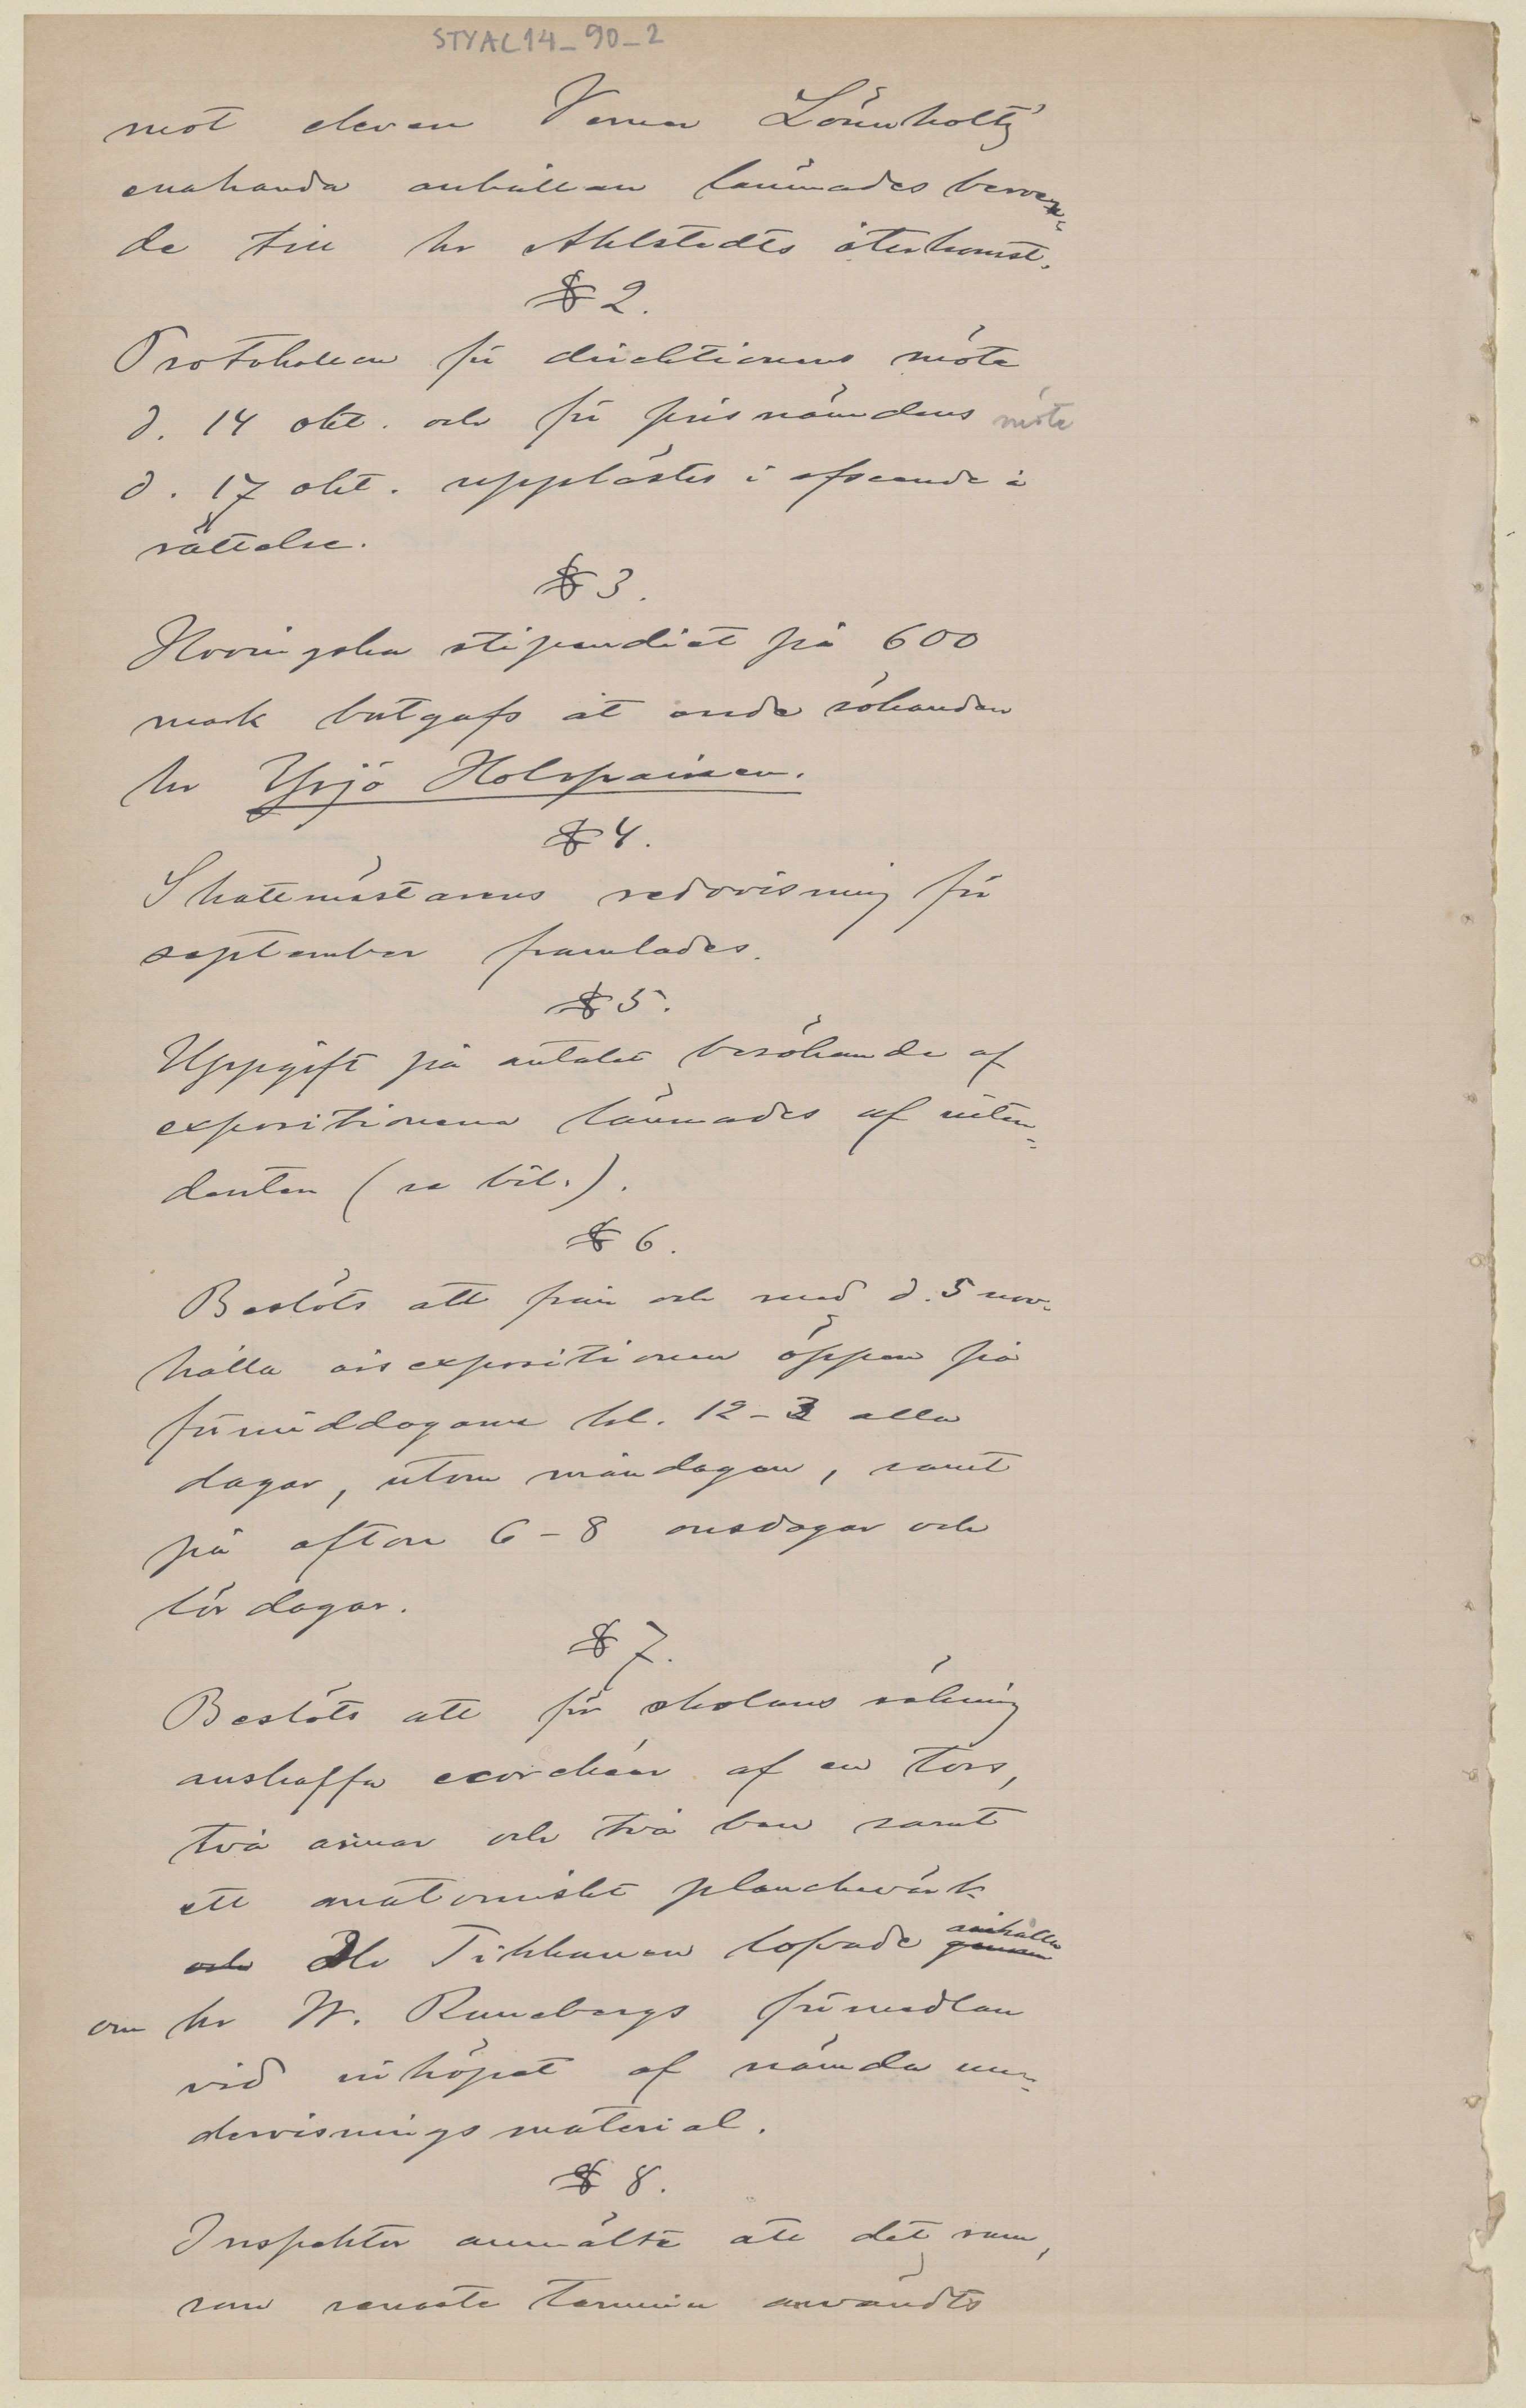 STYAL14_90_2
mot eleven Verner Lönnholtz
enahanda anhållan lämnades beroen-
de till hr Ahlstedts återkomst.
§ 2.
Protokollen för direktionens möte
d. 14 okt. och för prisnämndens möte
d. 17 okt. upplästes i afseende å
rättelse.
§ 3.
Hovingska stipendiet på 600
mark butgafs åt enda sökanden
hr Yrjö Holopainen.
§ 4.
Skattmästarens redovisning för
september framlades.
§ 5.
Uppgift på antalet besökande af
expositionerna lämnades af inten-
denten (se bil.).
§ 6.
Beslöts att från och med d. 5 nov.
hålla årsexpositionen öppen på
förmiddagarne kl. 12-3 alla
dagar, utom måndagen, samt
på afton 6-8 onsdagar och
lördagar.
§ 7.
Beslöts att för skolans räkning
anskaffa ecorchéer af en tors,
två armar och två ben samt
ett anatomiskt planchevärk
och Hr Tikkanen lofvade anhålla
om hr W. Runebergs förmedlan
vid inköpet af nämda un-
dervisningsmaterial.
§ 8.
Inspektor anmälte att det rum,
som senaste termin användts